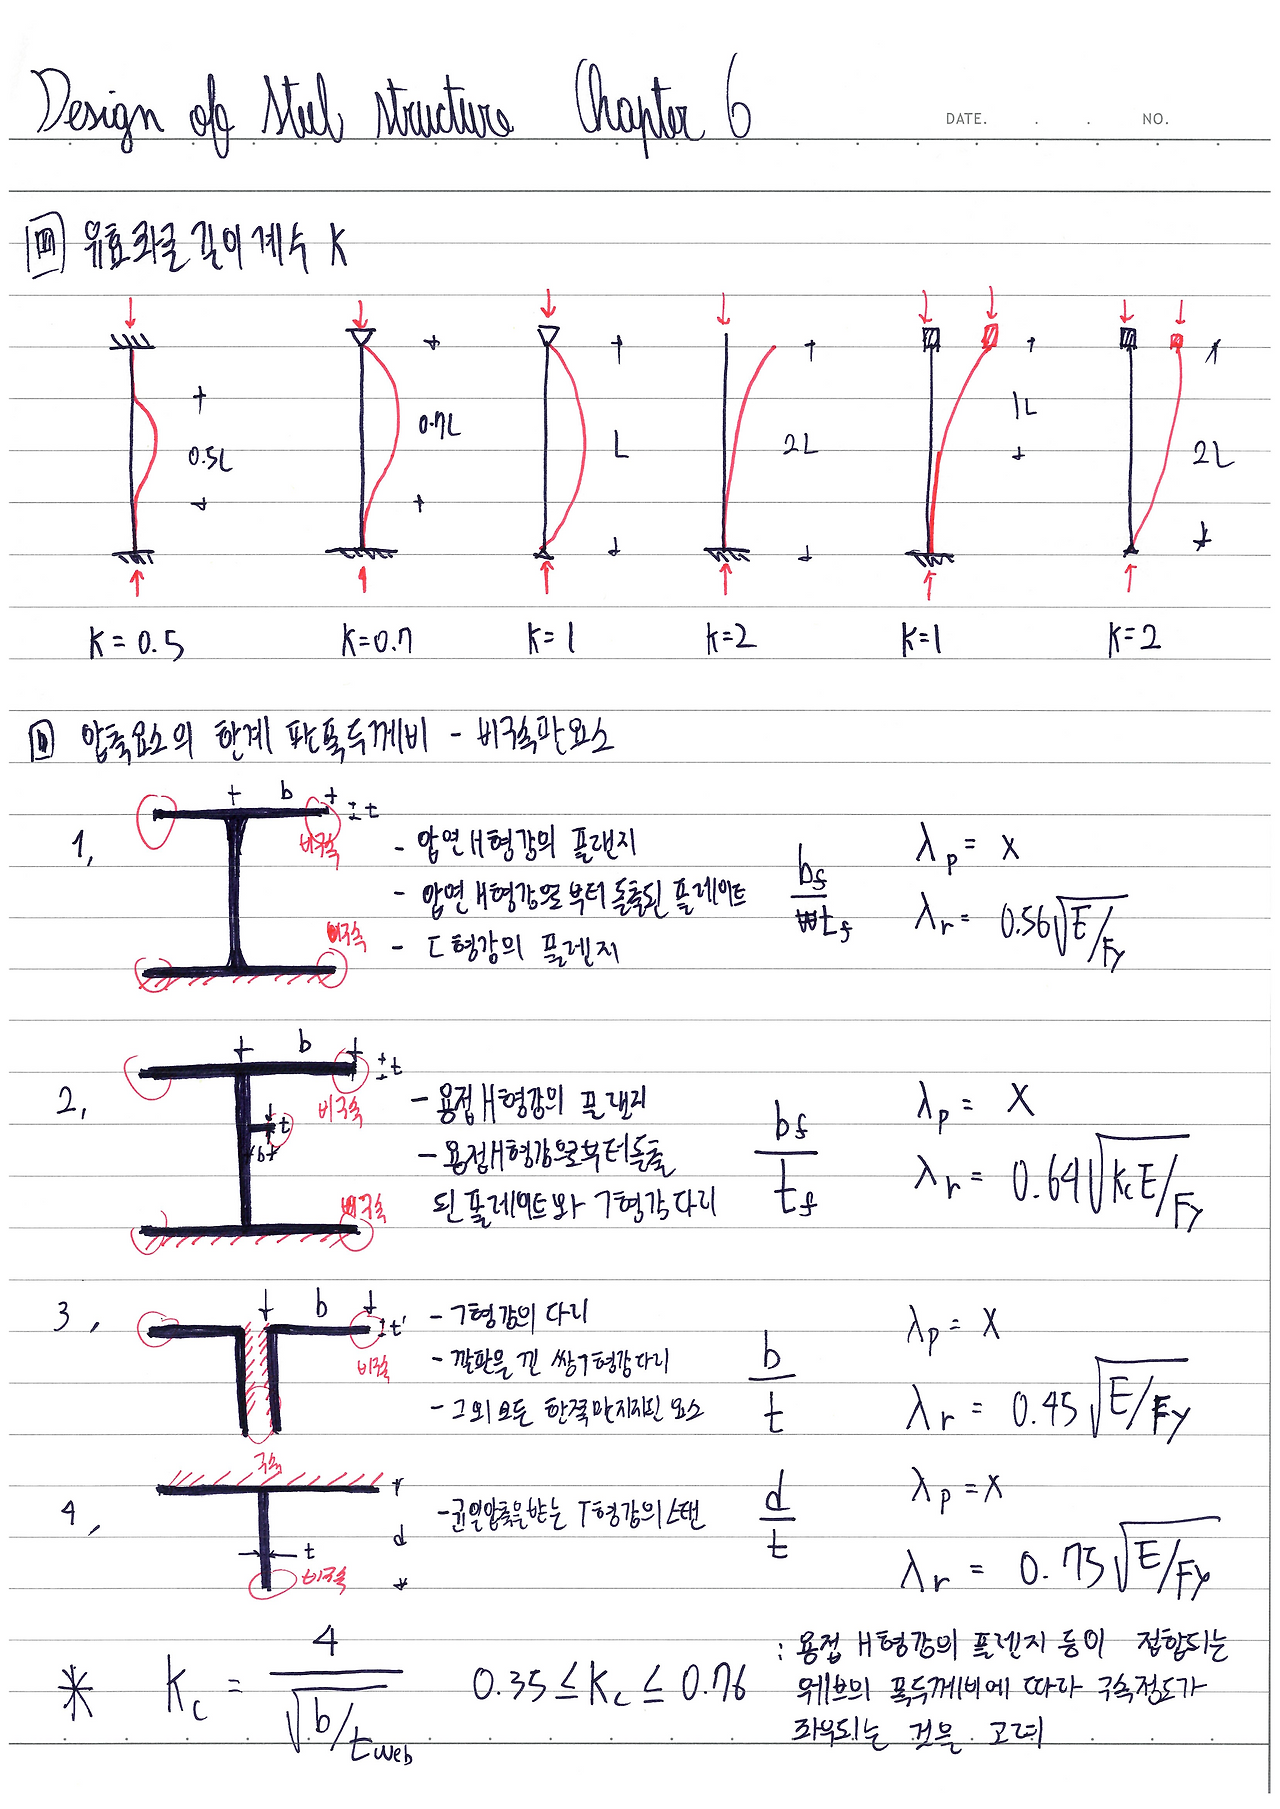 Design of Steel Structure Chapter 6
DATE. . . NO.
유효좌굴길이계수 K
0.5L 0.7L L 2L 1L 2L
K=0.5 K=0.7 K=1 K=2 K=1 K=2
압축요소의 한계 판폭두께비 - 비구속판요소
1,
b
t
비구속
비구속
- 압연H형강의 플랜지
- 압연H형강으로부터 돌출된 플레이트
- ㄷ형강의 플렌지
bf/tf
λp = X
λr = 0.56√E/Fy
2,
b
t
비구속
t
b
비구속
- 용접H형강의 플랜지
- 용접H형강으로부터돌출
된 플레이트와 ㄱ형강다리
bf/tf
λp = X
λr = 0.64√KcE/Fy
3,
b
t
비구속
- ㄱ형강의 다리
- 깔판을 낀 쌍ㄱ형강다리
- 그외 모든 한쪽만지지된 요소
b/t
λp = X
λr = 0.45√E/Fy
4,
구속
t
d
비구속
- 균일압축을받는 T형강의스탬
d/t
λp = X
λr = 0.75√E/Fy
* Kc = 4/√b/tweb 0.35 ≤ Kc ≤ 0.76
: 용접 H형강의 플렌지 등이 접합되는
웨브의 폭두께비에 따라 구속정도가
좌우되는 것을 고려